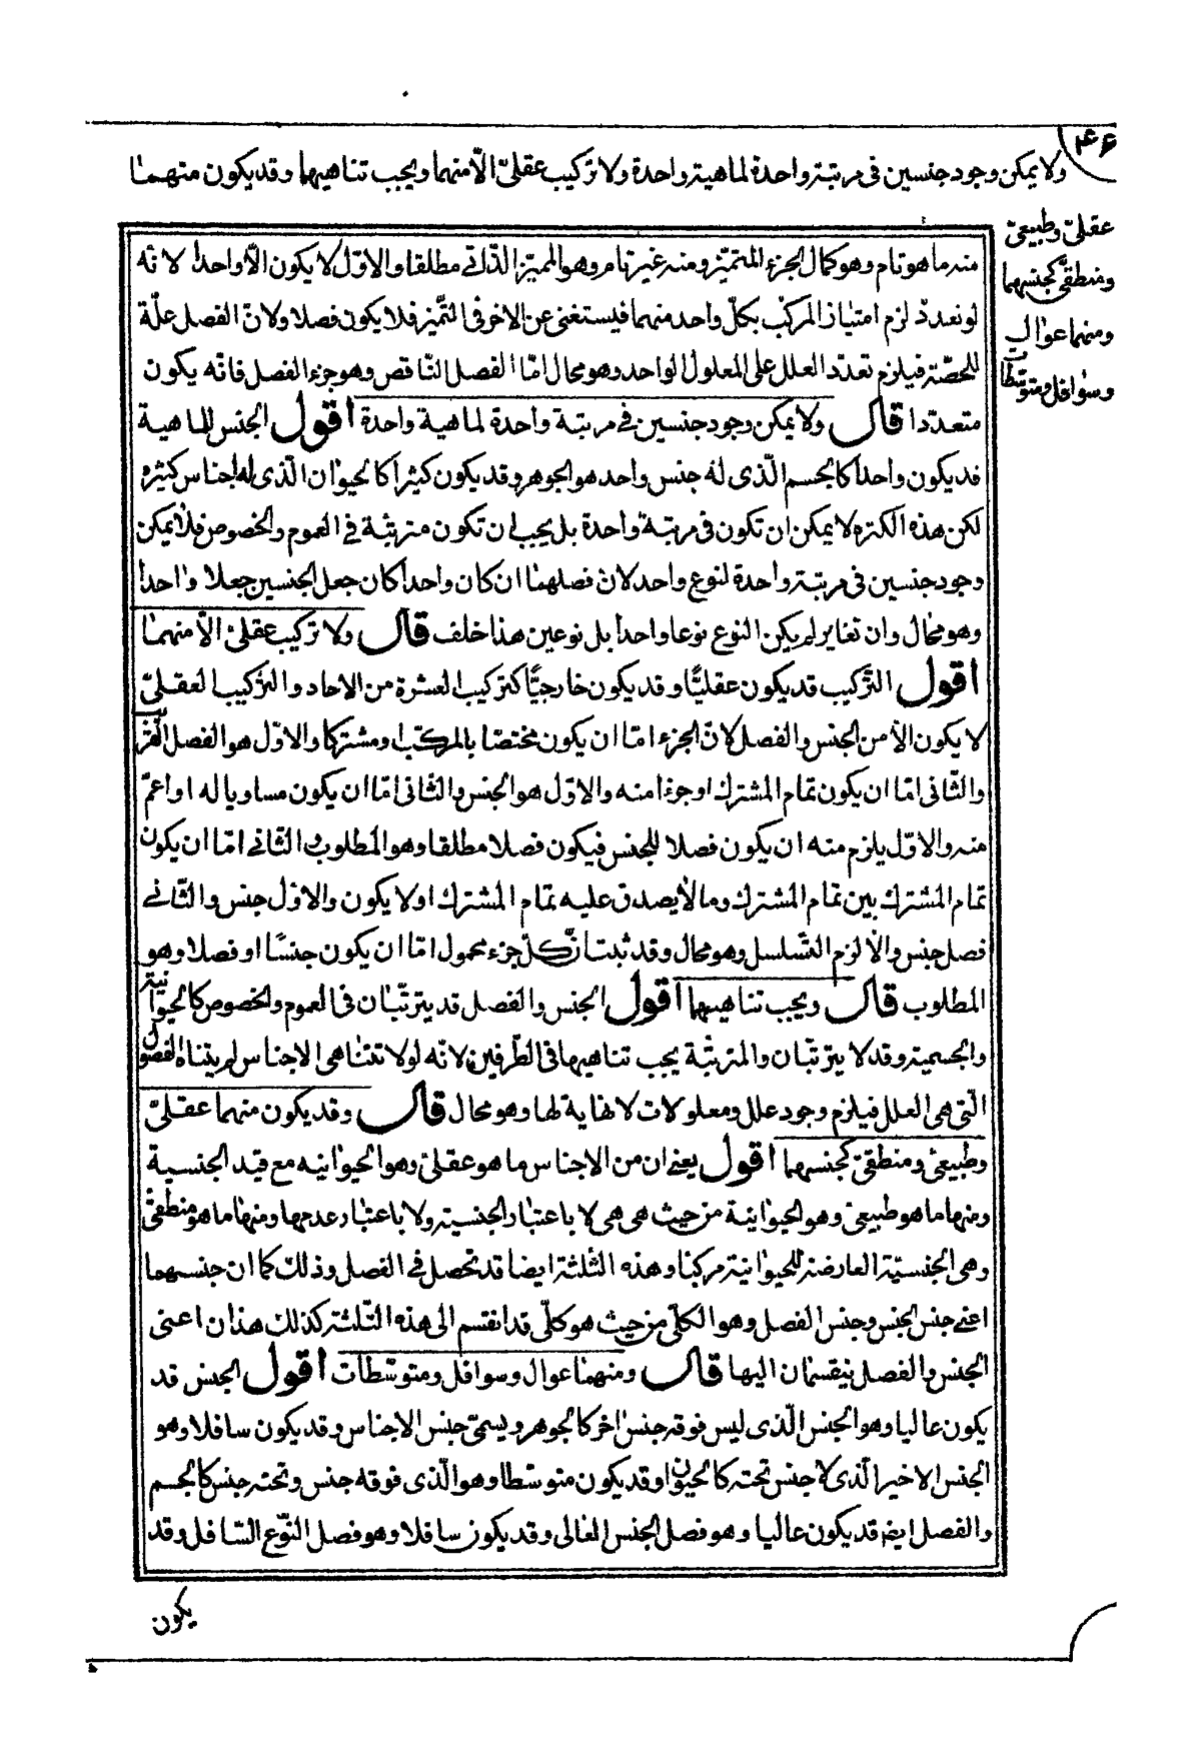 ۴۶
ولا يمكن وجود جنسين فى مرتبة واحدة لماهية واحدة ولا تركيب عقلىّ الّا منهما ويجب تناهيهما وقد يكون منهما
عقلىّ وطبيعىّ
ومنطقىّ كجنسهما
ومنهما عوال
وسوافل ومتوسّطات
منه ما هو تام وهو كمال الجزء المتميّز ومنه غير تام وهو المميز الذّاتى مطلقا والاوّل لا يكون الّا واحدا لانّه
لو تعدّد لزم امتياز المركّب بكلّ واحد منهما فيستغنى عن الاخر فى التّميز فلا يكون فصلا ولانّ الفصل علّة
للحصّة فيلزم تعدّد العلل على المعلول الواحد وهو محال امّا الفصل النّاقص وهو جزء الفصل فانّه يكون
متعدّدا قال ولا يمكن وجود جنسين فى مرتبة واحدة لماهية واحدة اقول الجنس للماهية
قد يكون واحدا كالجسم الّذى له جنس واحد هو الجوهر وقد يكون كثيرا كالحيوان الّذى له اجناس كثيره
لكن هذه الكثره لا يمكن ان تكون فى مرتبة واحدة بل يجب ان تكون مترتبة فى العموم والخصوص فلا يمكن
وجود جنسين فى مرتبة واحدة لنوع واحد لانّ فصلهما ان كان واحدا كان جعل الجنسين جعلا واحدا
وهو محال وان تغاير لم يكن النوع نوعا واحدا بل نوعين هذا خلف قال ولا تركيب عقلىّ الّا منهما
اقول التّركيب قد يكون عقليّا وقد يكون خارجيّا كتركيب العشرة من الاحاد والتركيب العقلىّ
لا يكون الّا من الجنس والفصل لانّ الجزء امّا ان يكون مختصّا بالمركّب او مشتركا والاوّل هو الفصل القريب
والثّانى امّا ان يكون تمام المشترك او جزءا منه والاوّل هو الجنس والثانى امّا ان يكون مساويا له او اعمّ
منه والاوّل يلزم منه ان يكون فصلا للجنس فيكون فصلا مطلقا وهو المطلوب والثّانى امّا ان يكون
تمام المشترك بين تمام المشترك وما لا يصدق عليه تمام المشترك او لا يكون والاوّل جنس والثّانى
فصل جنس والّا لزم التّسلسل وهو محال وقد ثبت انّ كلّ جزء محمول امّا ان يكون جنسا او فصلا وهو
المطلوب قال ويجب تناهيهما اقول الجنس والفصل قد يترتّبان فى العموم والخصوص كالحيوانية
والجسمية وقد لا يترتّبان والمترتّبة يجب تناهيها فى الطّرفين لانّه لولا تتناهى الاجناس لم يتناه الفصول
الّتى هى العلل فيلزم وجود علل ومعلولات لا نهاية لها وهو محال قال وقد يكون منهما عقلىّ
وطبيعىّ ومنطقىّ كجنسهما اقول يعنى ان من الاجناس ما هو عقلىّ وهو الحيوانيه مع قيد الجنسية
ومنها ما هو طبيعىّ وهو الحيوانية من حيث هى هى لا باعتبار الجنسية ولا باعتبار عدمها ومنها ما هو منطقىّ
وهى الجنسيّة العارضة للحيوانية مركبا وهذه الثلثة ايضا قد تحصل فى الفصل وذلك كما ان جنسهما
اعنى جنس الجنس وجنس الفصل وهو الكلّى من حيث هو كلّى قد انقسم الى هذه الثّلثة كذلك هذان اعنى
الجنس والفصل ينقسمان اليها قال ومنهما عوال وسوافل ومتوسّطات اقول الجنس قد
يكون عاليا وهو الجنس الّذى ليس فوقه جنس اخر كالجوهر ويسمّى جنس الاجناس وقد يكون سافلا وهو
الجنس الاخير الّذى لا جنس تحته كالحيوان وقد يكون متوسّطا وهو الّذى فوقه جنس وتحته جنس كالجسم
والفصل ايضه قد يكون عاليا وهو فصل الجنس العالى وقد يكون سافلا وهو فصل النّوع السّافل وقد
يكون